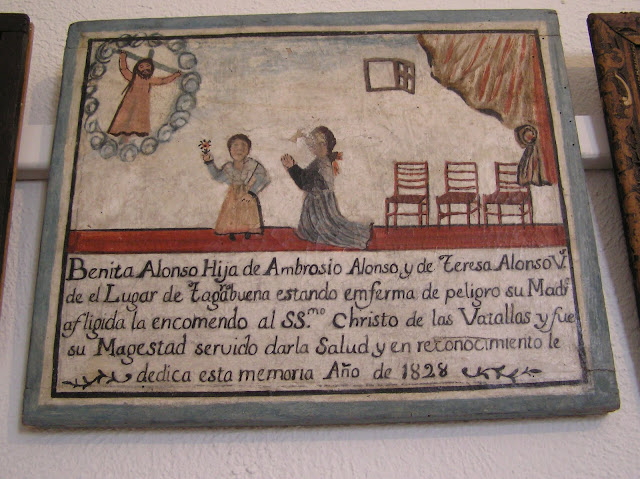 Benita Alonso Hija de Ambrosio Alonso, y de Teresa Alonso V.s
de el Lugar de Tagabuena estando emferma de peligro su Mad.e
afligida la encomendo al SS.mo Christo de las Vatallas y fue
su Magestad servido darla Salud y en reconocimiento le
dedica esta memoria Año de 1828